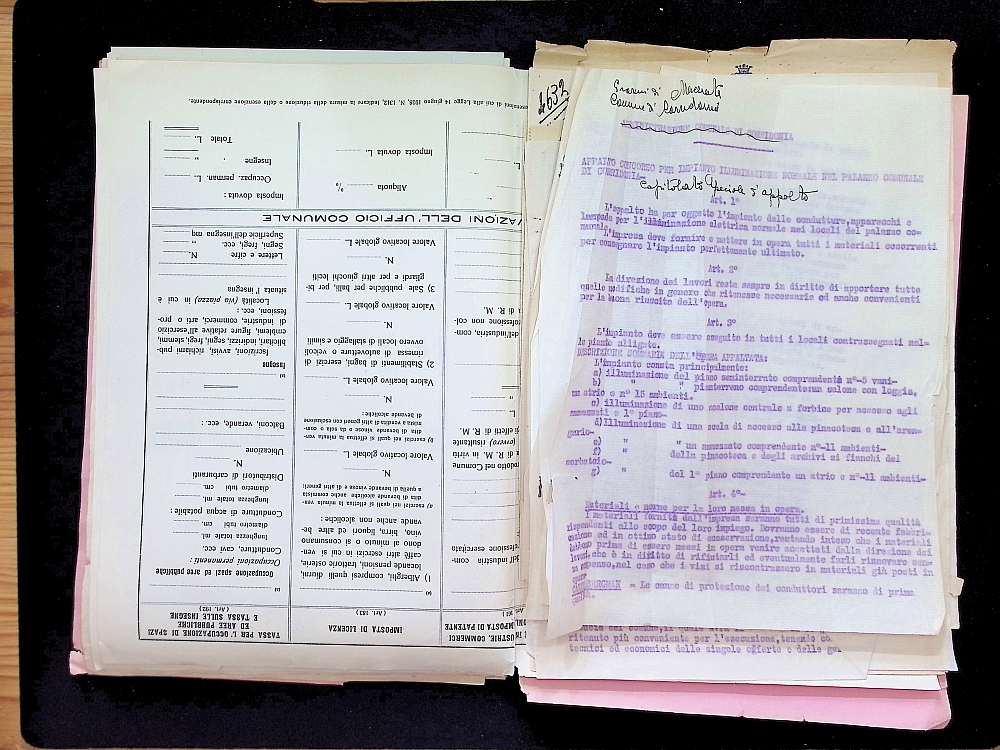 4633
Provincia di Macerata
Comune di Corridonia
AMMINISTRAZIONE COMUNALE DI CORRIDONIA
APPALTO CONCORSO PER IMPIANTO ILLUMINAZIONE NORMALE NEL PALAZZO COMUNALE
DI CORRIDONIA-
Capitolato speciale d'appalto
Art. 1°
L'appalto ha per oggetto l'impianto delle condutture, apparecchi e
lampade per l'illuminazione elettrica normale nei locali del palazzo co-
munale.
L'impresa deve fornire e mettere in opera tutti i materiali occorrenti
per consegnare l'impianto perfettamente ultimato.
Art. 2°
La direzione dei lavori resta sempre in diritto di apportare tutte
quelle modifiche in genere che ritenesse necessarie ed anche convenienti
per la buona riuscita dell'opera.
Art. 3°
L'impianto deve essere eseguito in tutti i locali contrassegnati nel-
le piante allegate.
DESCRIZIONE SOMMARIA DELL'OPERA APPALTATA:
L'impianto consta principalmente:
a) illuminazione del piano seminterrato comprendente n°-5 vani-
b) " " pianterreno comprendente:un salone con loggia,
un atrio e n° 15 ambienti.
c) illuminazione di uno scalone centrale a forbice per accesso agli
ammezzati e 1° piano-
d)Illuminazione di una scala di accesso alla pinacoteca e all'aren-
gario-
e) " " un ammezzato comprendente n°-11 ambienti-
f) " della pinacoteca e degli archivi ai fianchi del
serbatoio-
g) " del 1° piano comprendente un atrio e n°-11 ambienti-
Art. 4°-
Materiali e norme per la loro messa in opera.
I materiali forniti dall'impresa saranno tutti di primissima qualità
rispondenti allo scopo del loro impiego. Dovranno essere di recente fabbri-
cazione ed in ottimo stato di conservazione,restando inteso che i materiali
debbono prima di essere messi in opera venire accettati dalla direzione dei
lavori,che è in diritto di rifiutarli ed eventualmente farli rinnovare sen-
za compenso,nel caso che i vizi si riscontrassero in materiali già posti in
opera-
BERGMAN = Le canne di protezione dei conduttori saranno di prima
ritenuto più conveniente per l'esecuzione,tenendo co
tecnici ed economici delle singole offerte e delle ga
TASSA PER L' OCCUPAZIONE DI SPAZI
ED AREE PUBBLICHE
E TASSA SULLE INSEGNE
(Art. 192)
Occupazione spazi ed aree pubbliche
Occupazioni permanenti:
Condutture, cavi ecc.
lunghezza totale ml.
diametro tubi cm.
Condutture di acqua potabile:
lunghezza totale ml.
diametro tubi cm.
Distributori di carburanti
N.
Ubicazione
Balconi, verande, ecc.:
Insegne
Iscrizioni, avvisi, richiami pub-
blicitari, indirizzi, segni, fregi, stemmi,
emblemi, figure relative all'esercizio
di industrie, commerci, arti o pro-
fessioni, ecc.:
Località (via piazza) in cui è
situata l'insegna
Lettere e cifre N.
Segni, fregi, ecc.
Superficie dell'insegna mq
IMPOSTA DI LICENZA
(Art. 183)
1) Alberghi, compresi quelli diurni,
locande, pensioni, trattorie osterie,
caffè altri esercizi in cui si ven-
dono al minuto o si consumano
vino, birra, liquori ed altre be-
vande anche non alcooliche:
Valore locativo globale L.
N.
2) Stabilimenti di bagni, esercizi di
rimessa di autovetture o veicoli
ovvero locali di stallaggio e simili
N.
Valore locativo globale L.
3) Sale pubbliche per balli, per bi-
gliardi e per altri giuochi leciti
N.
Valore locativo globale L.
VAZIONI DELL'UFFICIO COMUNALE
Imposta dovuta:
Occupaz. perman. L.
Insegne "
Totale L.
Aliquota %
Imposta dovuta L.
esenzioni di cui alla Legge 14 giugno 1928, N. 1312, indicare la misura della riduzione o della esenzione corrispondente.